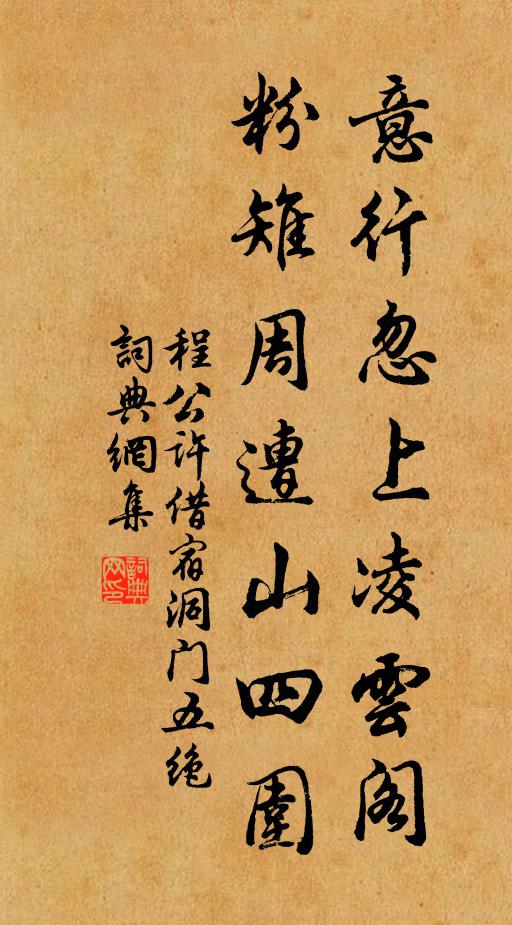 意行忽上凌雲阁
粉雉周遭山四圍
程公许借宿洞门五绝
詞典網集
詞典网印